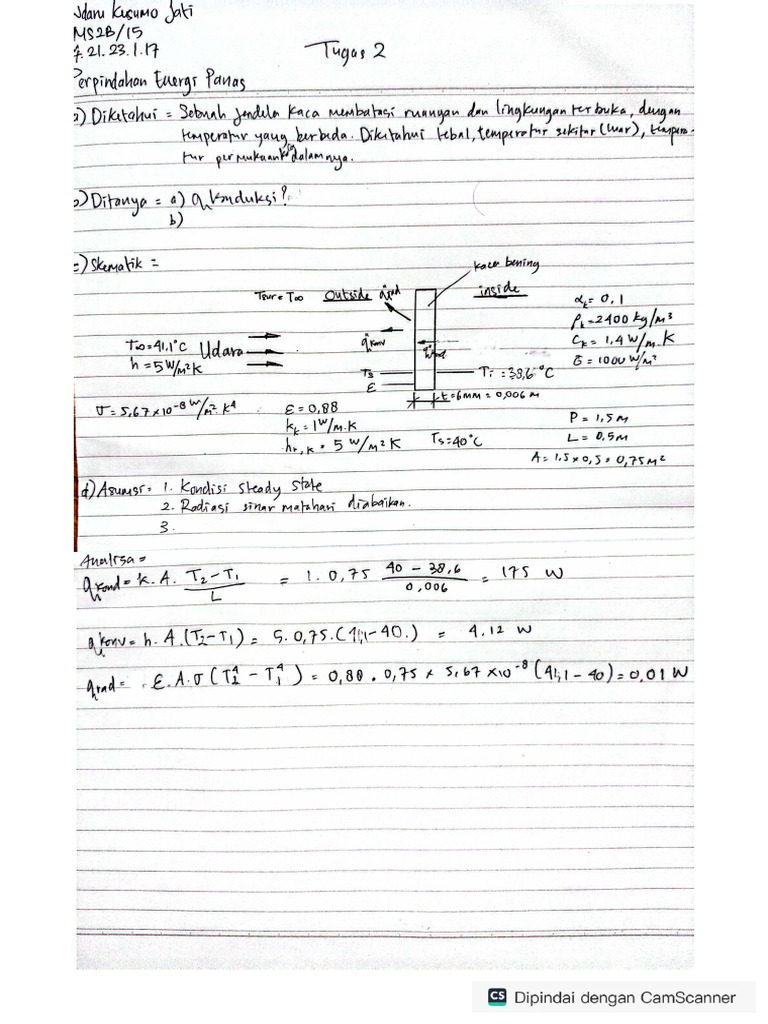 Ndaru Kusumo Jati
MS2B/15
4.21.23.1.17
Tugas 2
Perpindahan Energi Panas
a) Diketahui = Sebuah jendela kaca membatasi ruangan dan lingkungan terbuka, dengan
temperatur yang berbeda. Diketahui tebal, temperatur sekitar (luar), tempera-
tur permukaan dalamnya.
b) Ditanya = a) q konduksi?
b)
c) Skematik =
kaca bening
Tsur = T∞ outside qrad inside
αk = 0,1
ρk = 2400 kg/m³
T∞ = 41,1°C Udara qkonv
Ck = 1,4 W/m.K
h = 5 W/m²K
G = 1000 W/m²
Ts Ti = 38,6°C
ε
t = 6mm = 0,006 m
σ = 5,67 x 10⁻⁸ W/m².K⁴ ε = 0,88
P = 1,5m
kk = 1 W/m.K
hr,k = 5 W/m²K Ts = 40°C L = 0,5m
A = 1,5 x 0,5 = 0,75 m²
d) Asumsi = 1. Kondisi steady state
2. Radiasi sinar matahari diabaikan.
3.
Analisa =
qkond = k. A. T2 - T1 / L = 1. 0,75 40 - 38,6 / 0,006 = 175 W
qkonv = h. A. (T2 - T1) = 5. 0,75. (41,1 - 40.) = 4.12 W
qrad = ε. A. σ (T2⁴ - T1⁴) = 0,88 . 0,75 x 5,67 x10⁻⁸ (41,1 - 40) = 0,01 W
CS Dipindai dengan CamScanner